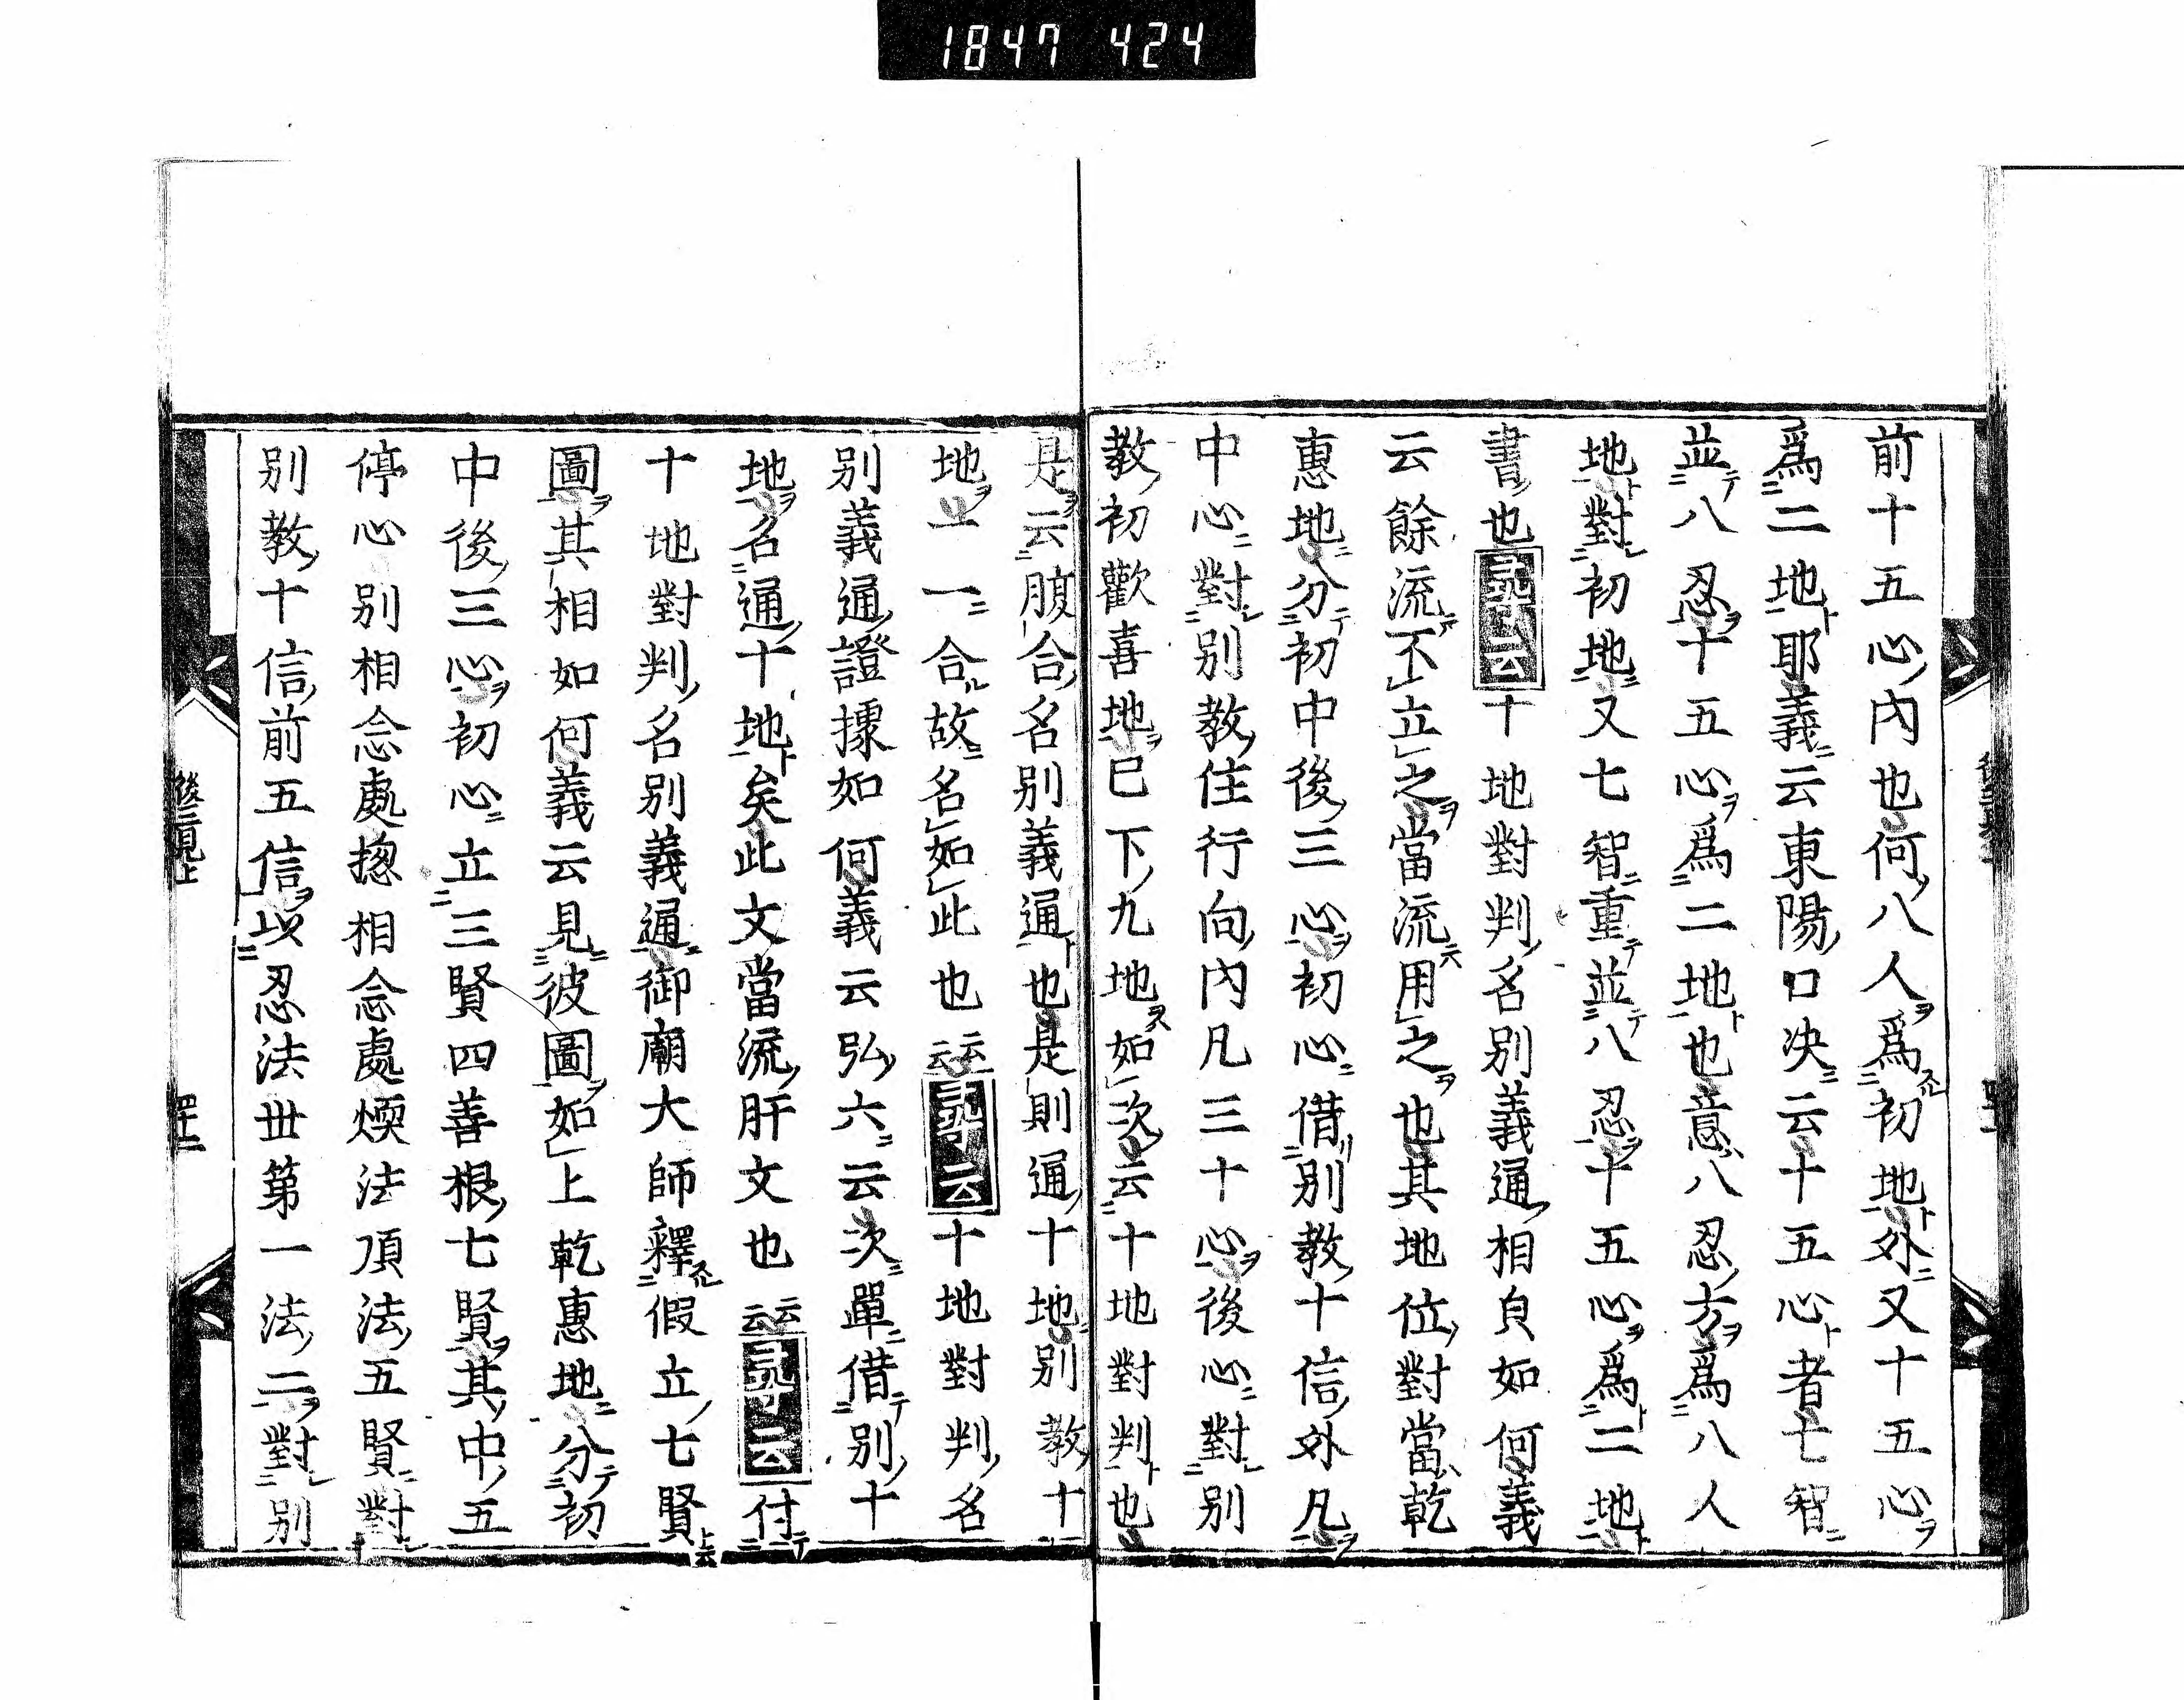 1847 424
前十五心内也何八人爲初地外又十五心
爲二地耶義云東陽口决云十五心者七智
並八忍十五心爲二地也意八忍方爲八人
地對初地又七智重並八忍十五心爲二地
書也尋云十地對判名別義通相貞如何義
云餘流不立之當流用之也其地位對當乾
惠地分初中後三心初心借別教十信外凡
中心對別教住行向内凡三十心後心對別
教初歡喜地已下九地如次云十地對判也
是云腹合名別義通也是則通十地別教十
地一一合故名如此也云云尋云十地對判名
別義通證據如何義云弘六云次單借別十
地名通十地矣此文當流肝文也云云尋云付
十地對判名別義通御廟大師釋假立七賢
圖其相如何義云見彼圖如上乾惠地分初
中後三心初心立三賢四善根七賢其中五
停心別相念處揔相念處煗法頂法五賢對
別教十信前五信以忍法丗第一法二對別